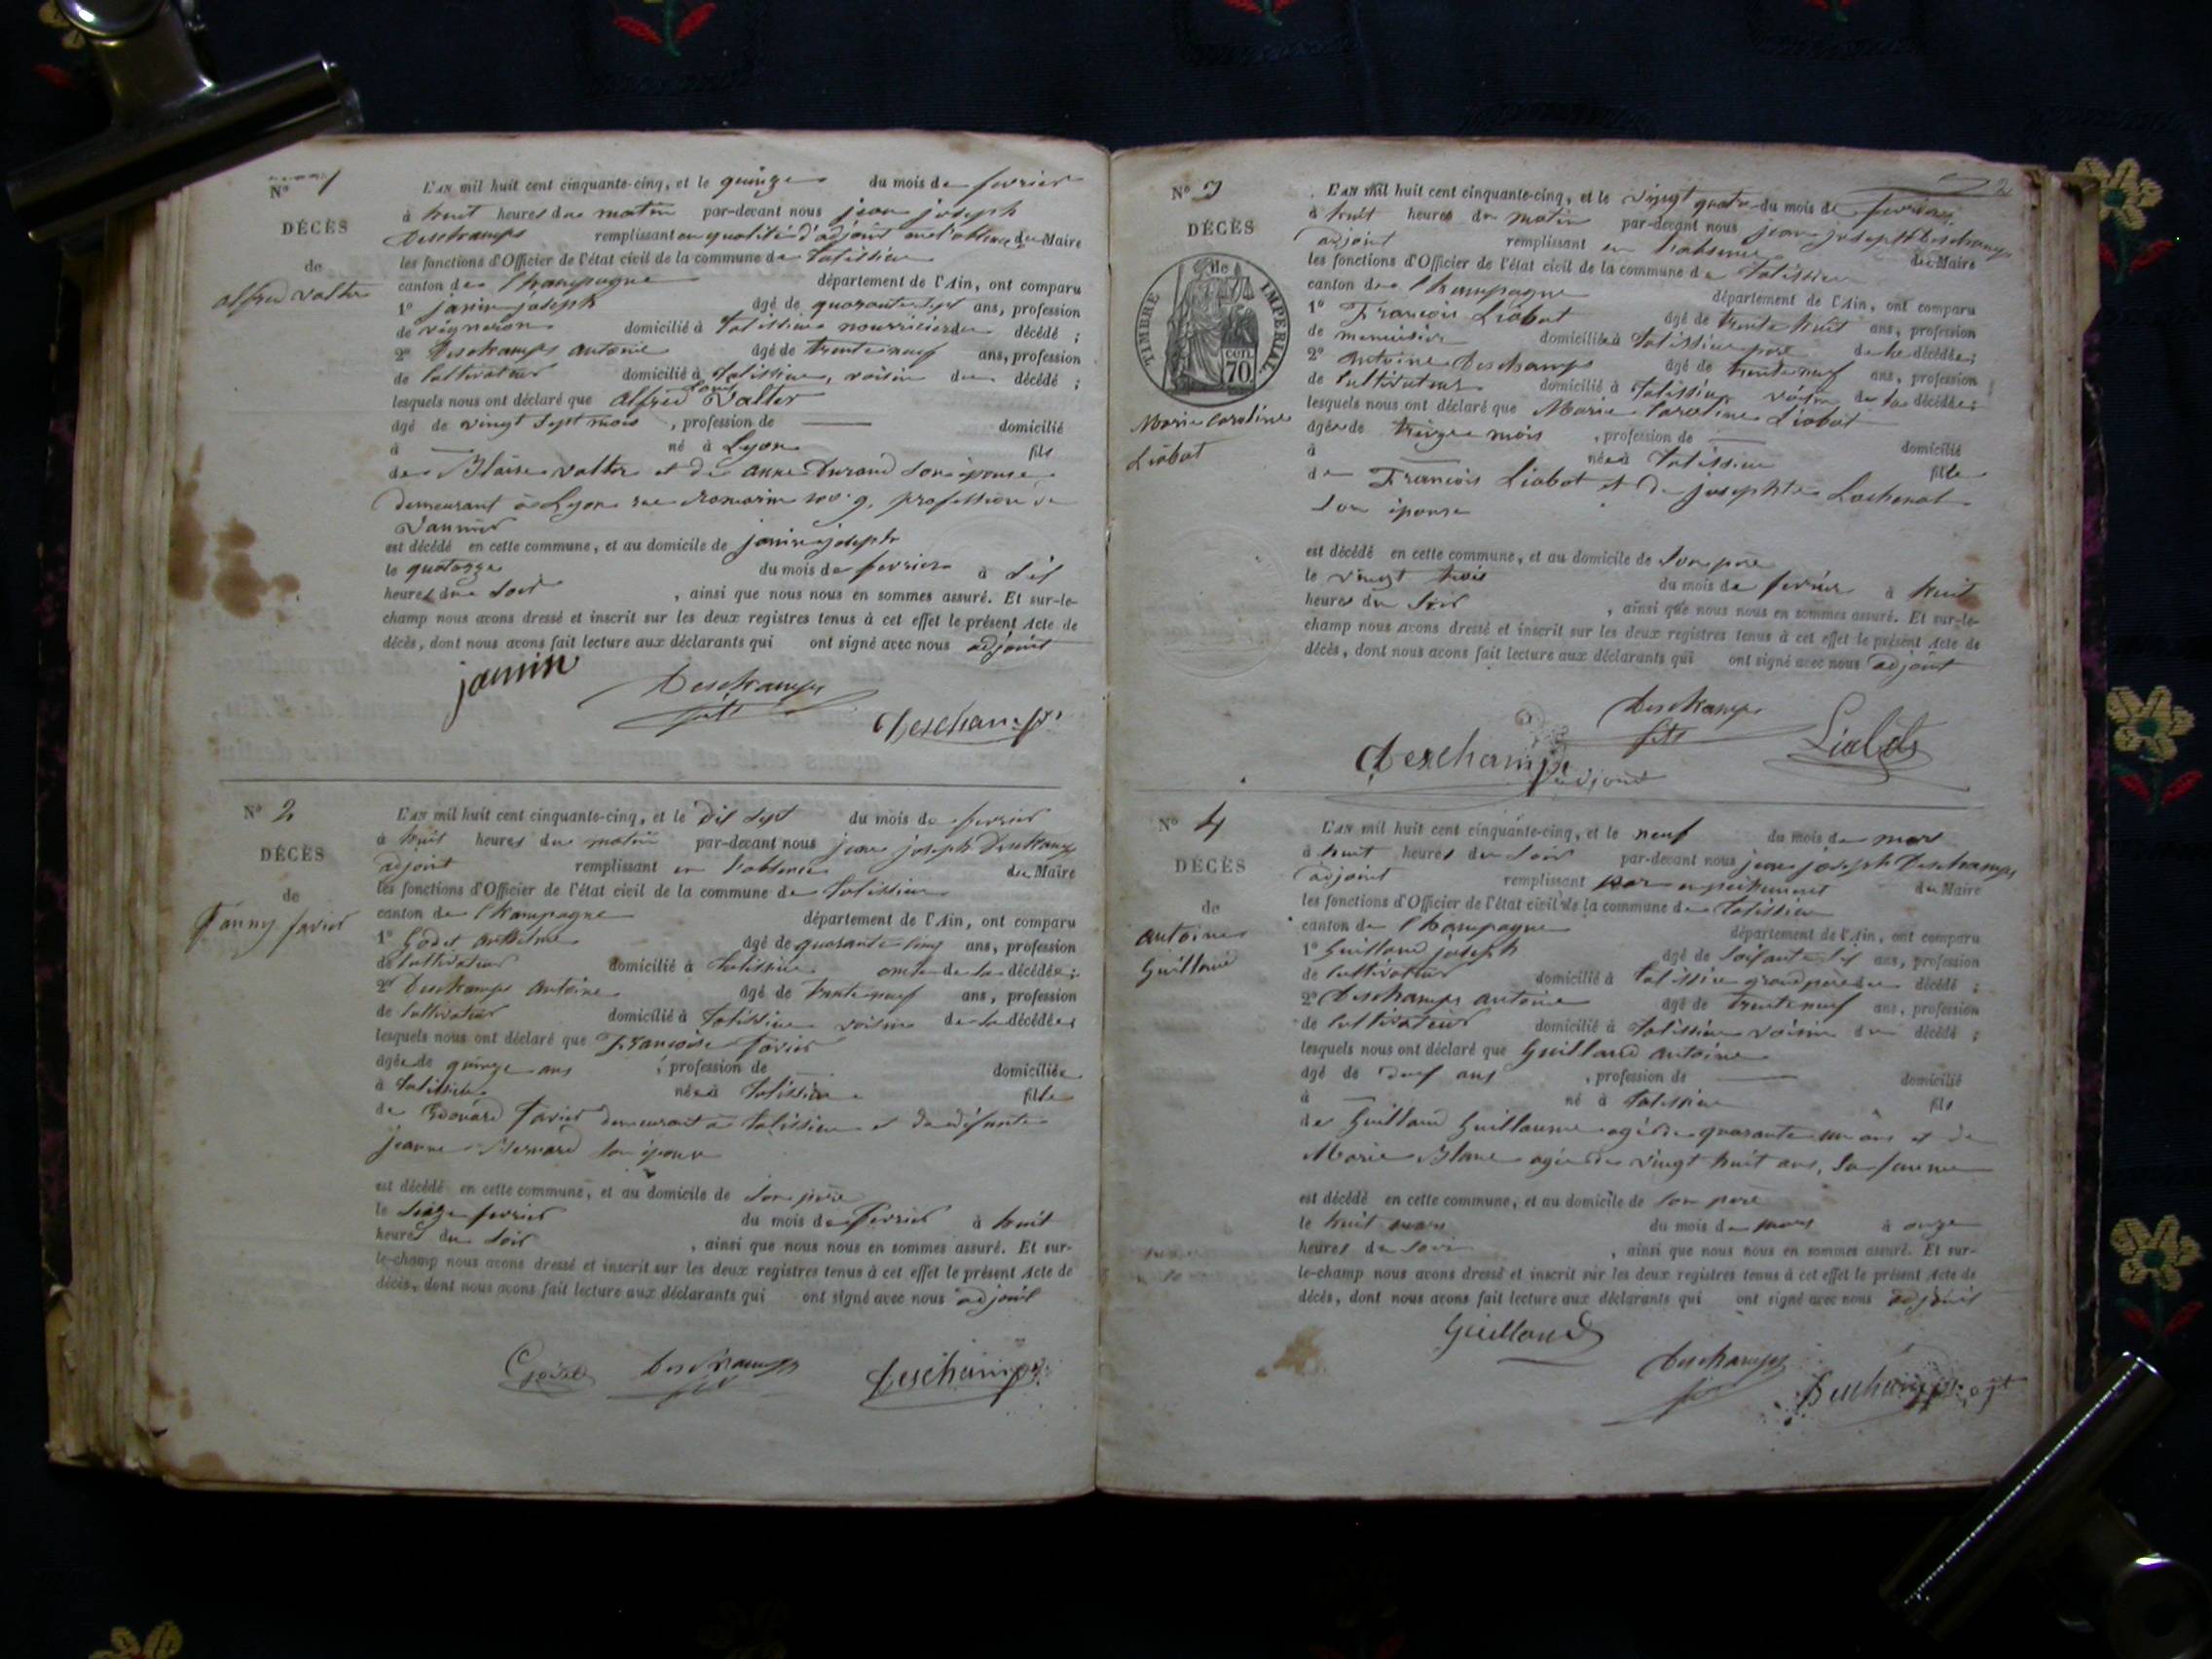 N° 1
DÉCÈS
de
alfred valter
L'AN mil huit cent cinquante-cinq, et le quinze du mois de fevrier
à huit heures du matin par-devant nous jean joseph
Deschamps remplissant en qualité d'adjoint en l'absence du Maire
les fonctions d'Officier de l'état civil de la commune de Talissieu
canton de Champagne département de l'Ain, ont comparu
1° janin joseph âgé de quarante sept ans, profession
de vigneron domicilié à Talissieu nourricier du décédé ;
2° Deschamps antoine âgé de trente neuf ans, profession
de Cultivateur domicilié à Talissieu, voisin du décédé ;
lesquels nous ont déclaré que alfred Valter
âgé de vingt sept mois , profession de domicilié
à né à Lyon fils
de Blaise valter et de anne Durand son épouse
demeurant à Lyon rue Romarin no. 9, profession de
Vannier
est décédé en cette commune, et au domicile de janin joseph
le quatorze du mois de fevrier à six
heures du soir , ainsi que nous nous en sommes assuré. Et sur-le-
champ nous avons dressé et inscrit sur les deux registres tenus à cet effet le présent Acte de
décès, dont nous avons fait lecture aux déclarants qui ont signé avec nous adjoint
janin
Deschamps
Deschamps
N° 2
DÉCÈS
de
Fanny favier
L'AN mil huit cent cinquante-cinq, et le dix sept du mois de fevrier
à huit heures du matin par-devant nous jean joseph Deschamps
adjoint remplissant en l'absence du Maire
les fonctions d'Officier de l'état civil de la commune de Talissieu
canton de Champagne département de l'Ain, ont comparu
1° Godet anthelme âgé de quarante cinq ans, profession
de Cultivateur domicilié à Talissieu oncle de la décédée ;
2° Deschamps antoine âgé de trente neuf ans, profession
de Cultivateur domicilié à Talissieu voisin de la décédée ;
lesquels nous ont déclaré que Françoise favier
âgée de quinze ans , profession de domiciliée
à Talissieu née à Talissieu fille
de Edouard favier demeurant à Talissieu et de défunte
jeanne Bernard son épouse
est décédé en cette commune, et au domicile de son père
le seize fevrier du mois de fevrier à huit
heures du soir , ainsi que nous nous en sommes assuré. Et sur-
le-champ nous avons dressé et inscrit sur les deux registres tenus à cet effet le présent Acte de
décès, dont nous avons fait lecture aux déclarants qui ont signé avec nous adjoint
Godet
Deschamps
Deschamps
2
N° 3
DÉCÈS
de
TIMBRE IMPERIAL
cen
70
Marie Caroline
Liobot
L'AN mil huit cent cinquante-cinq, et le vingt quatre du mois de fevrier
à huit heures du matin par-devant nous jean joseph Deschamps
adjoint remplissant en l'absence du Maire
les fonctions d'Officier de l'état civil de la commune de Talissieu
canton de Champagne département de l'Ain, ont comparu
1° François Liobot âgé de trente huit ans, profession
de menuisier domicilié à Talissieu père de la décédée ;
2° antoine Deschamps âgé de trente neuf ans, profession
de Cultivateur domicilié à Talissieu voisin de la décédée ;
lesquels nous ont déclaré que Marie Caroline Liobot
âgée de treize mois , profession de domicilié
à née à Talissieu fille
de François Liobot et de josephte Lachenal
son épouse
est décédé en cette commune, et au domicile de son père
le vingt trois du mois de fevrier à huit
heures du soir , ainsi que nous nous en sommes assuré. Et sur-le-
champ nous avons dressé et inscrit sur les deux registres tenus à cet effet le présent Acte de
décès, dont nous avons fait lecture aux déclarants qui ont signé avec nous adjoint
Deschamps
Deschamps adjoint
N° 4
DÉCÈS
de
antoine
Guilland
L'AN mil huit cent cinquante-cinq, et le neuf du mois de mars
à huit heures du soir par-devant nous jean joseph Deschamps
adjoint remplissant par empêchement du Maire
les fonctions d'Officier de l'état civil de la commune de Talissieu
canton de Champagne département de l'Ain, ont comparu
1° Guilland joseph âgé de soixante six ans, profession
de Cultivateur domicilié à Talissieu grand père du décédé ;
2° Deschamps antoine âgé de trente neuf ans, profession
de Cultivateur domicilié à Talissieu voisin du décédé ;
lesquels nous ont déclaré que Guilland antoine
âgé de ans , profession de domicilié
à né à Talissieu fils
de Guilland Guillaume agé de quarante un ans et de
Marie Blanc agée de vingt huit ans, sa femme
est décédé en cette commune, et au domicile de son père
le huit mars du mois de mars à onze
heures du soir , ainsi que nous nous en sommes assuré. Et sur-
le-champ nous avons dressé et inscrit sur les deux registres tenus à cet effet le présent Acte de
décès, dont nous avons fait lecture aux déclarants qui ont signé avec nous adjoint
Guilland
Deschamps
Deschamps, ajt